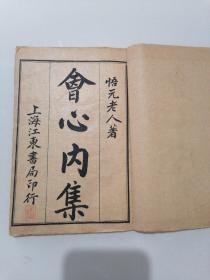 悟元老人著
會心內集
上海江東書局印行